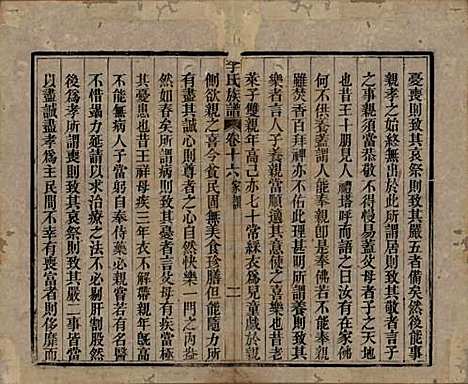 憂喪則致其哀祭則致其嚴五者備矣然後能事
親孝之始終無出於此所謂居則致其敬者子
之事親須當恭敬不得慢易蓋父母者子之天地
也昔王十朋見人禮塔呼而語之曰汝有在家佛
何不供養蓋謂人能奉親即是奉佛若不能奉親
雖焚香百拜神亦不佑此理甚明所謂養則致其
樂者言人子養親當順適其意使之喜樂也昔老
萊子雙親年高己亦七十常綵衣為兒童戲於親
側欲親之喜今貧民固無美食珍膳但能隨力所
有以盡其誠心則尊者之心自然快樂一門之內
然如春矣所謂病則致其憂者言父母有疾當極
其憂思也昔王祥母疾三年衣不解帶親年既高
不能無病人子當躬自奉侍藥必親嘗若有名醫
不惜竭力延請以求治療之法不必剔肝割股然
後為孝所謂喪則致其哀祭則致其嚴一事皆當
以盡誠盡孝為主民間不幸有喪富者則侈靡而
李氏族譜 卷十六 家訓 二